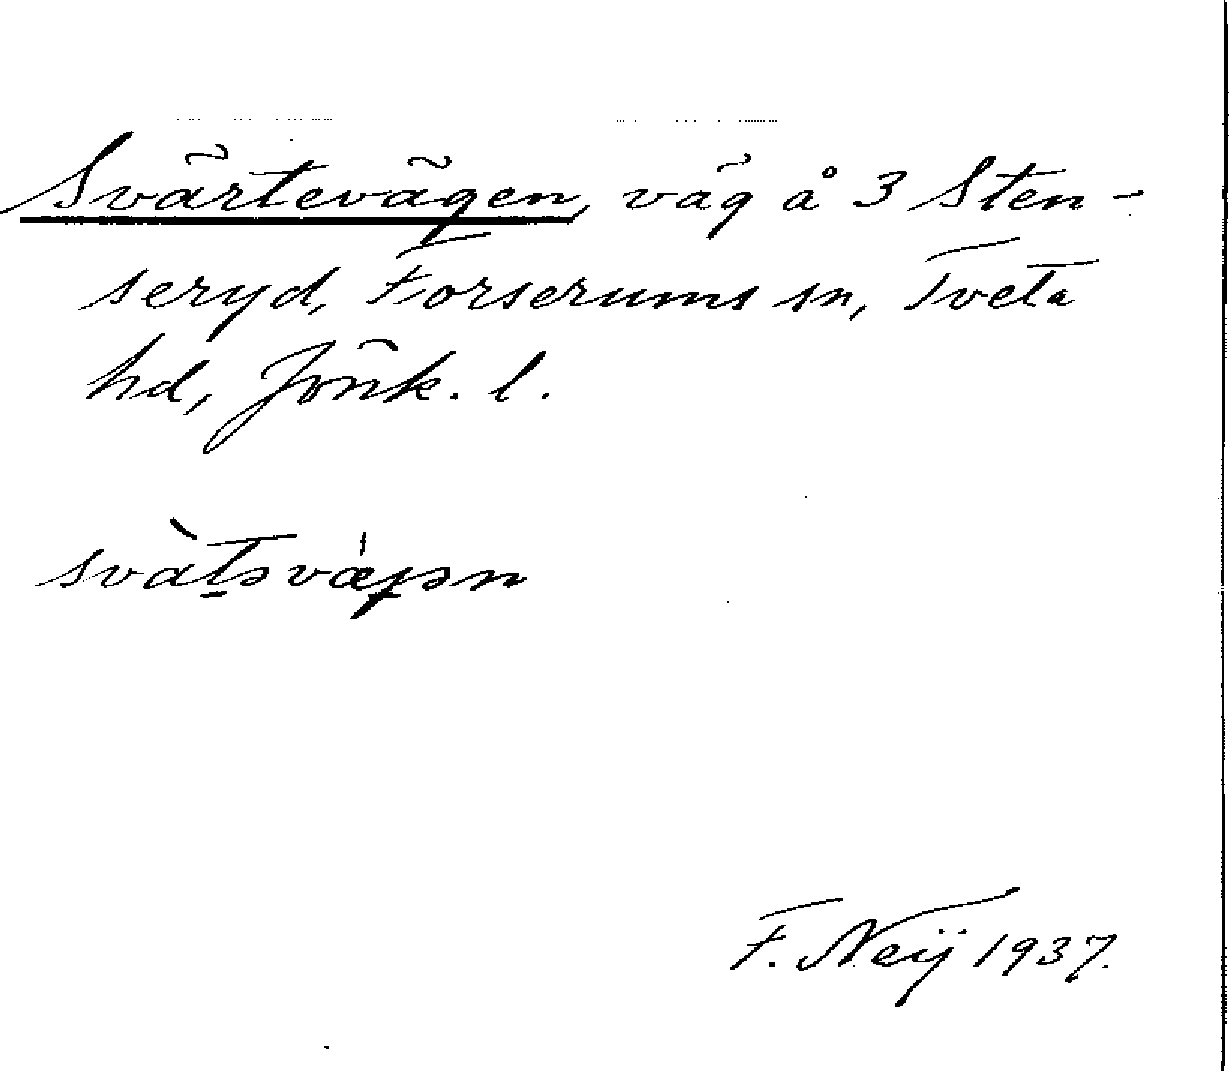 Svärtevägen, väg å 3 Sten-
seryd, Forserums sn, Tveta
hd, Jönk. l.
F. Neij 1937.